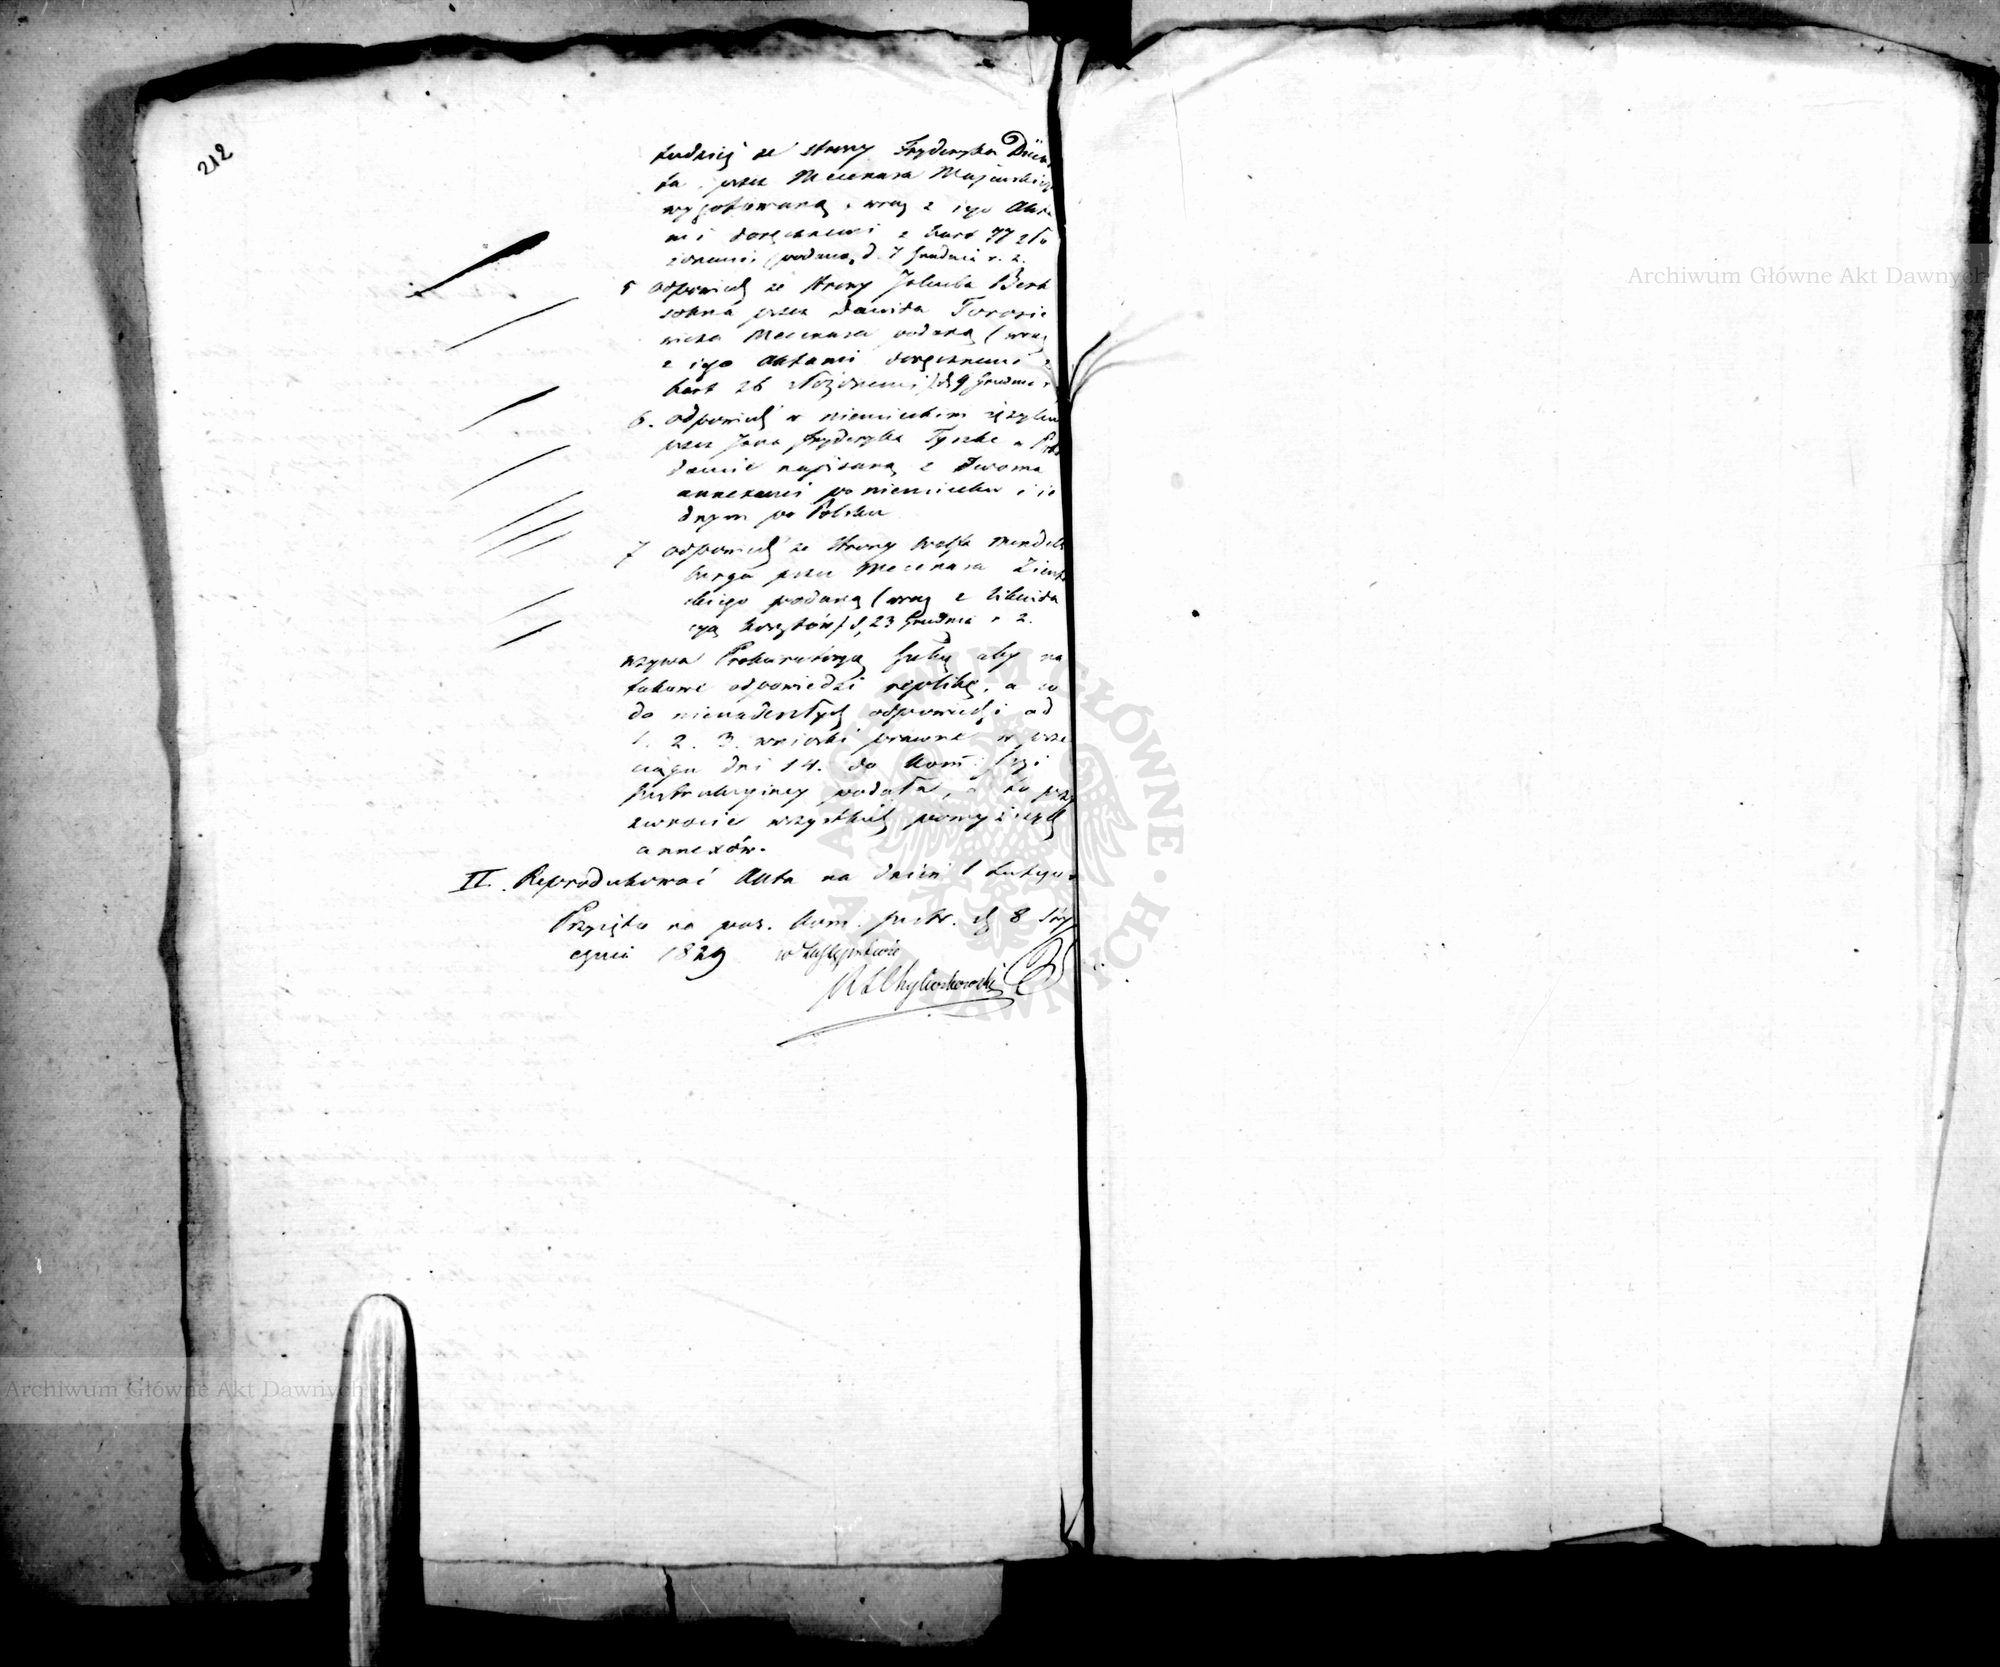 212
tudzież ze strony Fryderyka
ta przez Mecenasa
wygotowaną, wraz z iego Akta
mi doręcznemi z kart 77 zło
żonemi /podaną d. 7 Grudnia r. z.
5 odpowiedź ze strony Jakuba Berk
sohna przez Dawida
wicza Mecenasa podaną (wraz
z iego Aktami doręcznemi z
kart 26 złożonemi/ d 9 Grudnia r
6. odpowiedź w niemieckim ięzyku
przez Jana Fryderyka Tyszke w
damie napisaną z dwoma
annexami po niemiecku i ie
dnym po Polsku
7 odpowiedź ze strony Wolfa Mendels
burga przez Mecenasa
skiego podaną (wraz z likwida
cyą kosztów/ d, 23 Grudnia r z.
wzywa Prokuratoryą Gnłą aby na
takowe odpowiedzi replikę, a co
do nienadeszłych odpowiedzi ad
1. 2. 3. wnioski prawne w prze
ciągu dni 14. do Kom.
Instrukcyiney podała, a to przy
zwrocie wszystkich powyższych
annexów.
II. Reprodukować Akta na dzień 1 Lutego
Przyięto na pos. Kom. Instr. d 8 Sty
cznia 1829 w Zastępstwie
Archiwum Główne Akt Dawnych
Archiwum Główne Akt Dawnych
ARCHIWUM GŁÓWNE AKT DAWNYCH